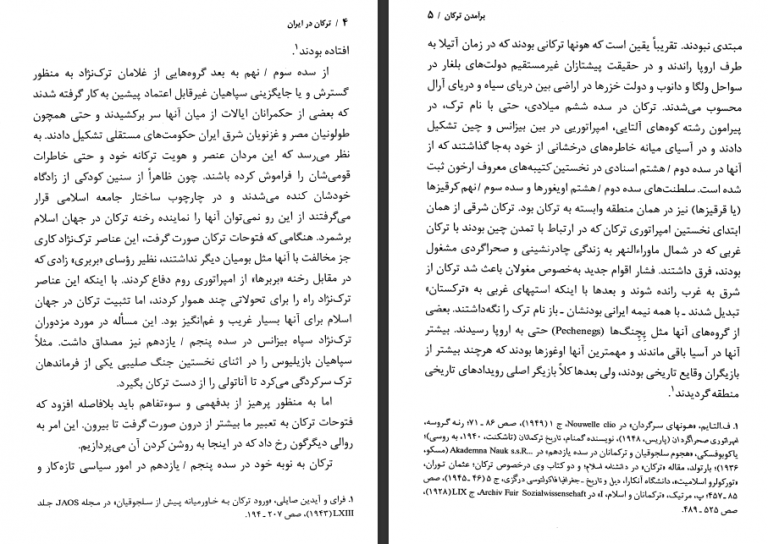 ۴ / ترکان در ایران
افتاده بودند.۱
از سده سوم / نهم به بعد گروه‌هایی از غلامان ترک‌نژاد به منظور
گسترش و یا جایگزینی سپاهیان غیرقابل اعتماد پیشین به کار گرفته شدند
که بعضی از حکمرانان ایالات از میان آنها سر برکشیدند و حتی همچون
طولونیان مصر و غزنویان شرق ایران حکومت‌های مستقلی تشکیل دادند. به
نظر می‌رسد که این مردان عنصر و هویت ترکانه خود و حتی خاطرات
قومی‌شان را فراموش کرده باشند. چون ظاهراً از سنین کودکی از زادگاه
خودشان کنده می‌شدند و در چارچوب ساختار جامعه اسلامی قرار
می‌گرفتند از این رو نمی‌توان آنها را نماینده رخنه ترکان در جهان اسلام
برشمرد. هنگامی که فتوحات ترکان صورت گرفت، این عناصر ترک‌نژاد کاری
جز مخالفت با آنها مثل بومیان دیگر نداشتند، نظیر رؤسای «بربری» زادی که
در مقابل رخنه «بربرها» از امپراتوری روم دفاع کردند. با اینکه این عناصر
ترک‌نژاد راه را برای تحولاتی چند هموار کردند، اما تثبیت ترکان در جهان
اسلام برای آنها بسیار غریب و غم‌انگیز بود. این مسأله در مورد مزدوران
ترک‌نژاد سپاه بیزانس در سده پنجم / یازدهم نیز مصداق داشت. مثلاً
سپاهیان بازیلیوس را در اثنای نخستین جنگ صلیبی یکی از فرماندهان
ترک سرکردگی می‌کرد تا آناتولی را از دست ترکان بگیرد.
اما به منظور پرهیز از بدفهمی و سوءتفاهم باید بلافاصله افزود که
فتوحات ترکان به تعبیر ما بیشتر از درون صورت گرفت تا بیرون. این امر به
روالی دیگرگون رخ داد که در اینجا به روشن کردن آن می‌پردازیم.
ترکان به نوبه خود در سده پنجم / یازدهم در امور سیاسی تازه‌کار و
۱. فرای و آیدین صایلی، «ورود ترکان به خاورمیانه پیش از سلجوقیان» در مجله JAOS، جلد
LXIII (۱۹۴۳)، صص ۲۰۷ ـ ۱۹۴.
برآمدن ترکان / ۵
مبتدی نبودند. تقریباً یقین است که هونها ترکانی بودند که در زمان آتیلا به
طرف اروپا راندند و در حقیقت پیشتازان غیرمستقیم دولت‌های بلغار در
سواحل ولگا و دانوب و دولت خزرها در اراضی بین دریای سیاه و دریای آرال
محسوب می‌شدند. ترکان در سده ششم میلادی، حتی با نام ترک، در
پیرامون رشته کوه‌های آلتایی، امپراتوریی در بین بیزانس و چین تشکیل
دادند و در آسیای میانه خاطره‌های درخشانی از خود به‌جا گذاشتند که از
آنها در سده دوم / هشتم اسنادی در نخستین کتیبه‌های معروف ارخون ثبت
شده است. سلطنت‌های سده دوم / هشتم اویغورها و سده سوم / نهم کرقیزها
(یا قرقیزها) نیز در همان منطقه وابسته به ترکان بود. ترکان شرقی از همان
ابتدای نخستین امپراتوری ترکان که در ارتباط با تمدن چین بودند با ترکان
غربی که در شمال ماوراءالنهر به زندگی چادرنشینی و صحراگردی مشغول
بودند، فرق داشتند. فشار اقوام جدید به‌خصوص مغولان باعث شد ترکان از
شرق به غرب رانده شوند و بعدها با اینکه استپهای غربی به «ترکستان»
تبدیل شدند ـ با همه نیمه ایرانی بودنشان ـ باز نام ترک را نگه‌داشتند. بعضی
از گروه‌های آنها مثل پچنگ‌ها (Pechenegs) حتی به اروپا رسیدند. بیشتر
آنها در آسیا باقی ماندند و مهمترین آنها اوغوزها بودند که هرچند بیشتر از
بازیگران وقایع تاریخی بودند، ولی بعدها کلاً بازیگر اصلی رویدادهای تاریخی
منطقه گردیدند.۱
۱. ف.آلتایم، «هونهای سرگردان» در Nouwelle clio، ج ۱ (۱۹۴۹)، صص ۸۶ ـ ۷۱؛ رنه گروسه،
امپراتوری صحراگردان (پاریس، ۱۹۴۸)، نویسنده گمنام، تاریخ ترکمانان (تاشکنت، ۱۹۴۰، به روسی)؛
یاکوبوفسکی، «هجوم سلجوقیان و ترکمانان در سده یازدهم» در Akademna Nauk s.s.R... (مسکو،
۱۹۳۶)؛ بارتولد، مقاله «ترکان» در دانشنامه اسلام؛ و دو کتاب وی درخصوص ترکان؛ عثمان توران،
«تورکولرو اسلامیت»، دانشگاه آنکارا، دیل و تاریخ ـ جغرافیا فاکولتوسی درگزی، ج ۵ (۴۶ ـ ۱۹۴۵)، صص
۸۵ ـ ۴۵۷؛ پ. مرتیک، «ترکمانان و اسلام، I» در Archiv Fuir Sozialwissensehaft، ج LIX (۱۹۲۸)،
صص ۵۲۵ ـ ۴۸۹.